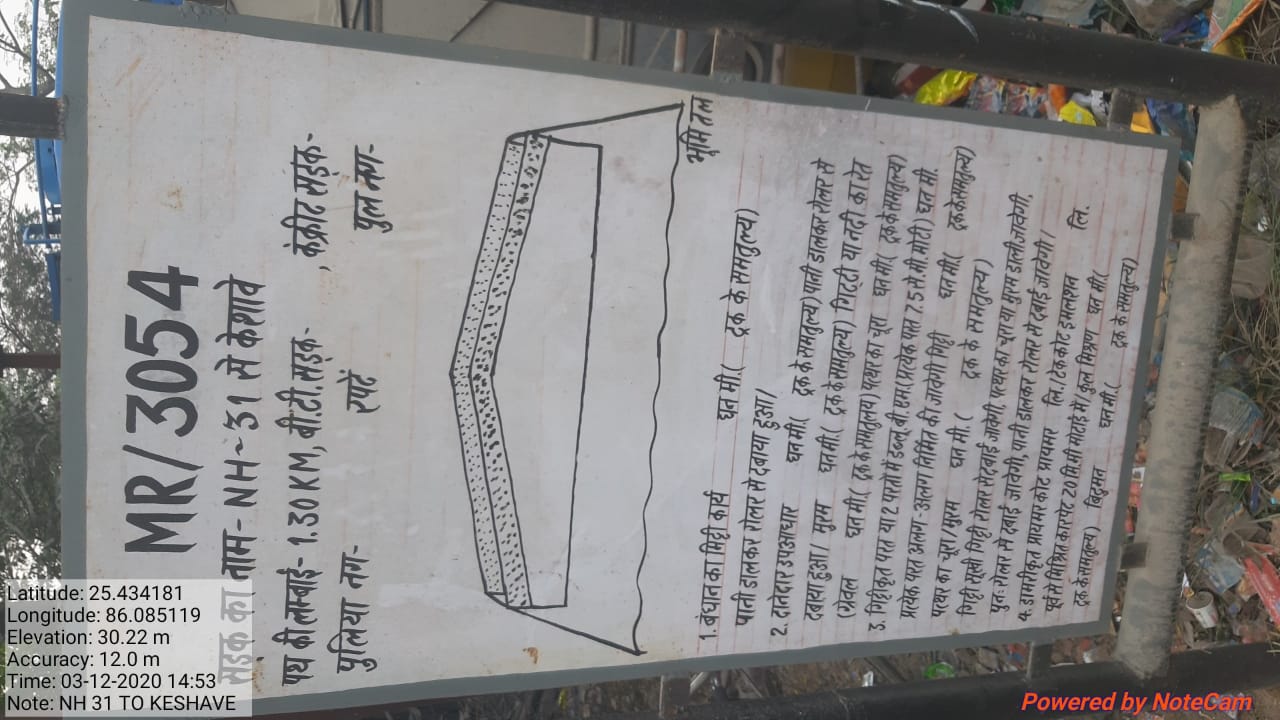 MR/3054
सड़क का नाम- NH-31 से केशावे
पथ की लम्बाई- 1.30 KM, बी.टी.सड़क- , कंक्रीट सड़क-
पुलिया नग- रपटें पुल नग-
भूमि तल
1. बंधान का मिट्टी कार्य घन मी ( ट्रक के समतुल्य)
पानी डालकर रोलर से दबाया हुआ।
2. दानेदार उपआधार घन मी ( ट्रक के समतुल्य) पानी डालकर रोलर से
दबाया हुआ। मुरम घन मी. ( ट्रक के समतुल्य) गिट्टी या नदी का रेत
(ग्रेवल घन मी ( ट्रक के समतुल्य) पत्थर का चूरा घन मी ( ट्रक के समतुल्य)
3. गिट्टीकृत परत या 2 परतों में डब्लू बी एम (प्रत्येक परत 7.5 से.मी मोटी) घन मी.
प्रत्येक परत अलग-अलग निर्मित की जावेगी गिट्टी घन मी ( ट्रक के समतुल्य)
पत्थर का चूरा/मुरम घन मी ( ट्रक के समतुल्य)
गिट्टी सूखी गिट्टी रोलर से दबाई जावेगी, पत्थर का चूरा या मुरम डाली जावेगी.
पुनः रोलर से दबाई जावेगी, पानी डालकर रोलर से दबाई जावेगी।
4. डामरीकृत प्रायमर कोट प्रायमर लि./टेक कोट इमलशन लि.
पूर्व से मिश्रित कारपेट 20 मि.मी मोटाई में/ कुल मिश्रण घन मी (
ट्रक के समतुल्य) बिटुमन घन मी ( ट्रक के समतुल्य)
Latitude: 25.434181
Longitude: 86.085119
Elevation: 30.22 m
Accuracy: 12.0 m
Time: 03-12-2020 14:53
Note: NH 31 TO KESHAVE
Powered by NoteCam